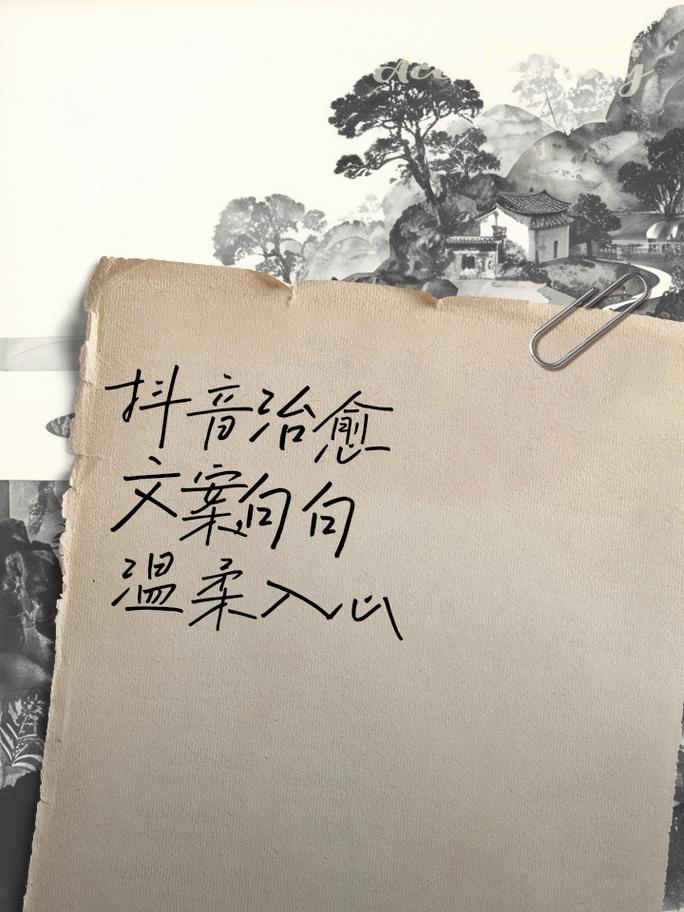 抖音治愈
文案句句
温柔入心